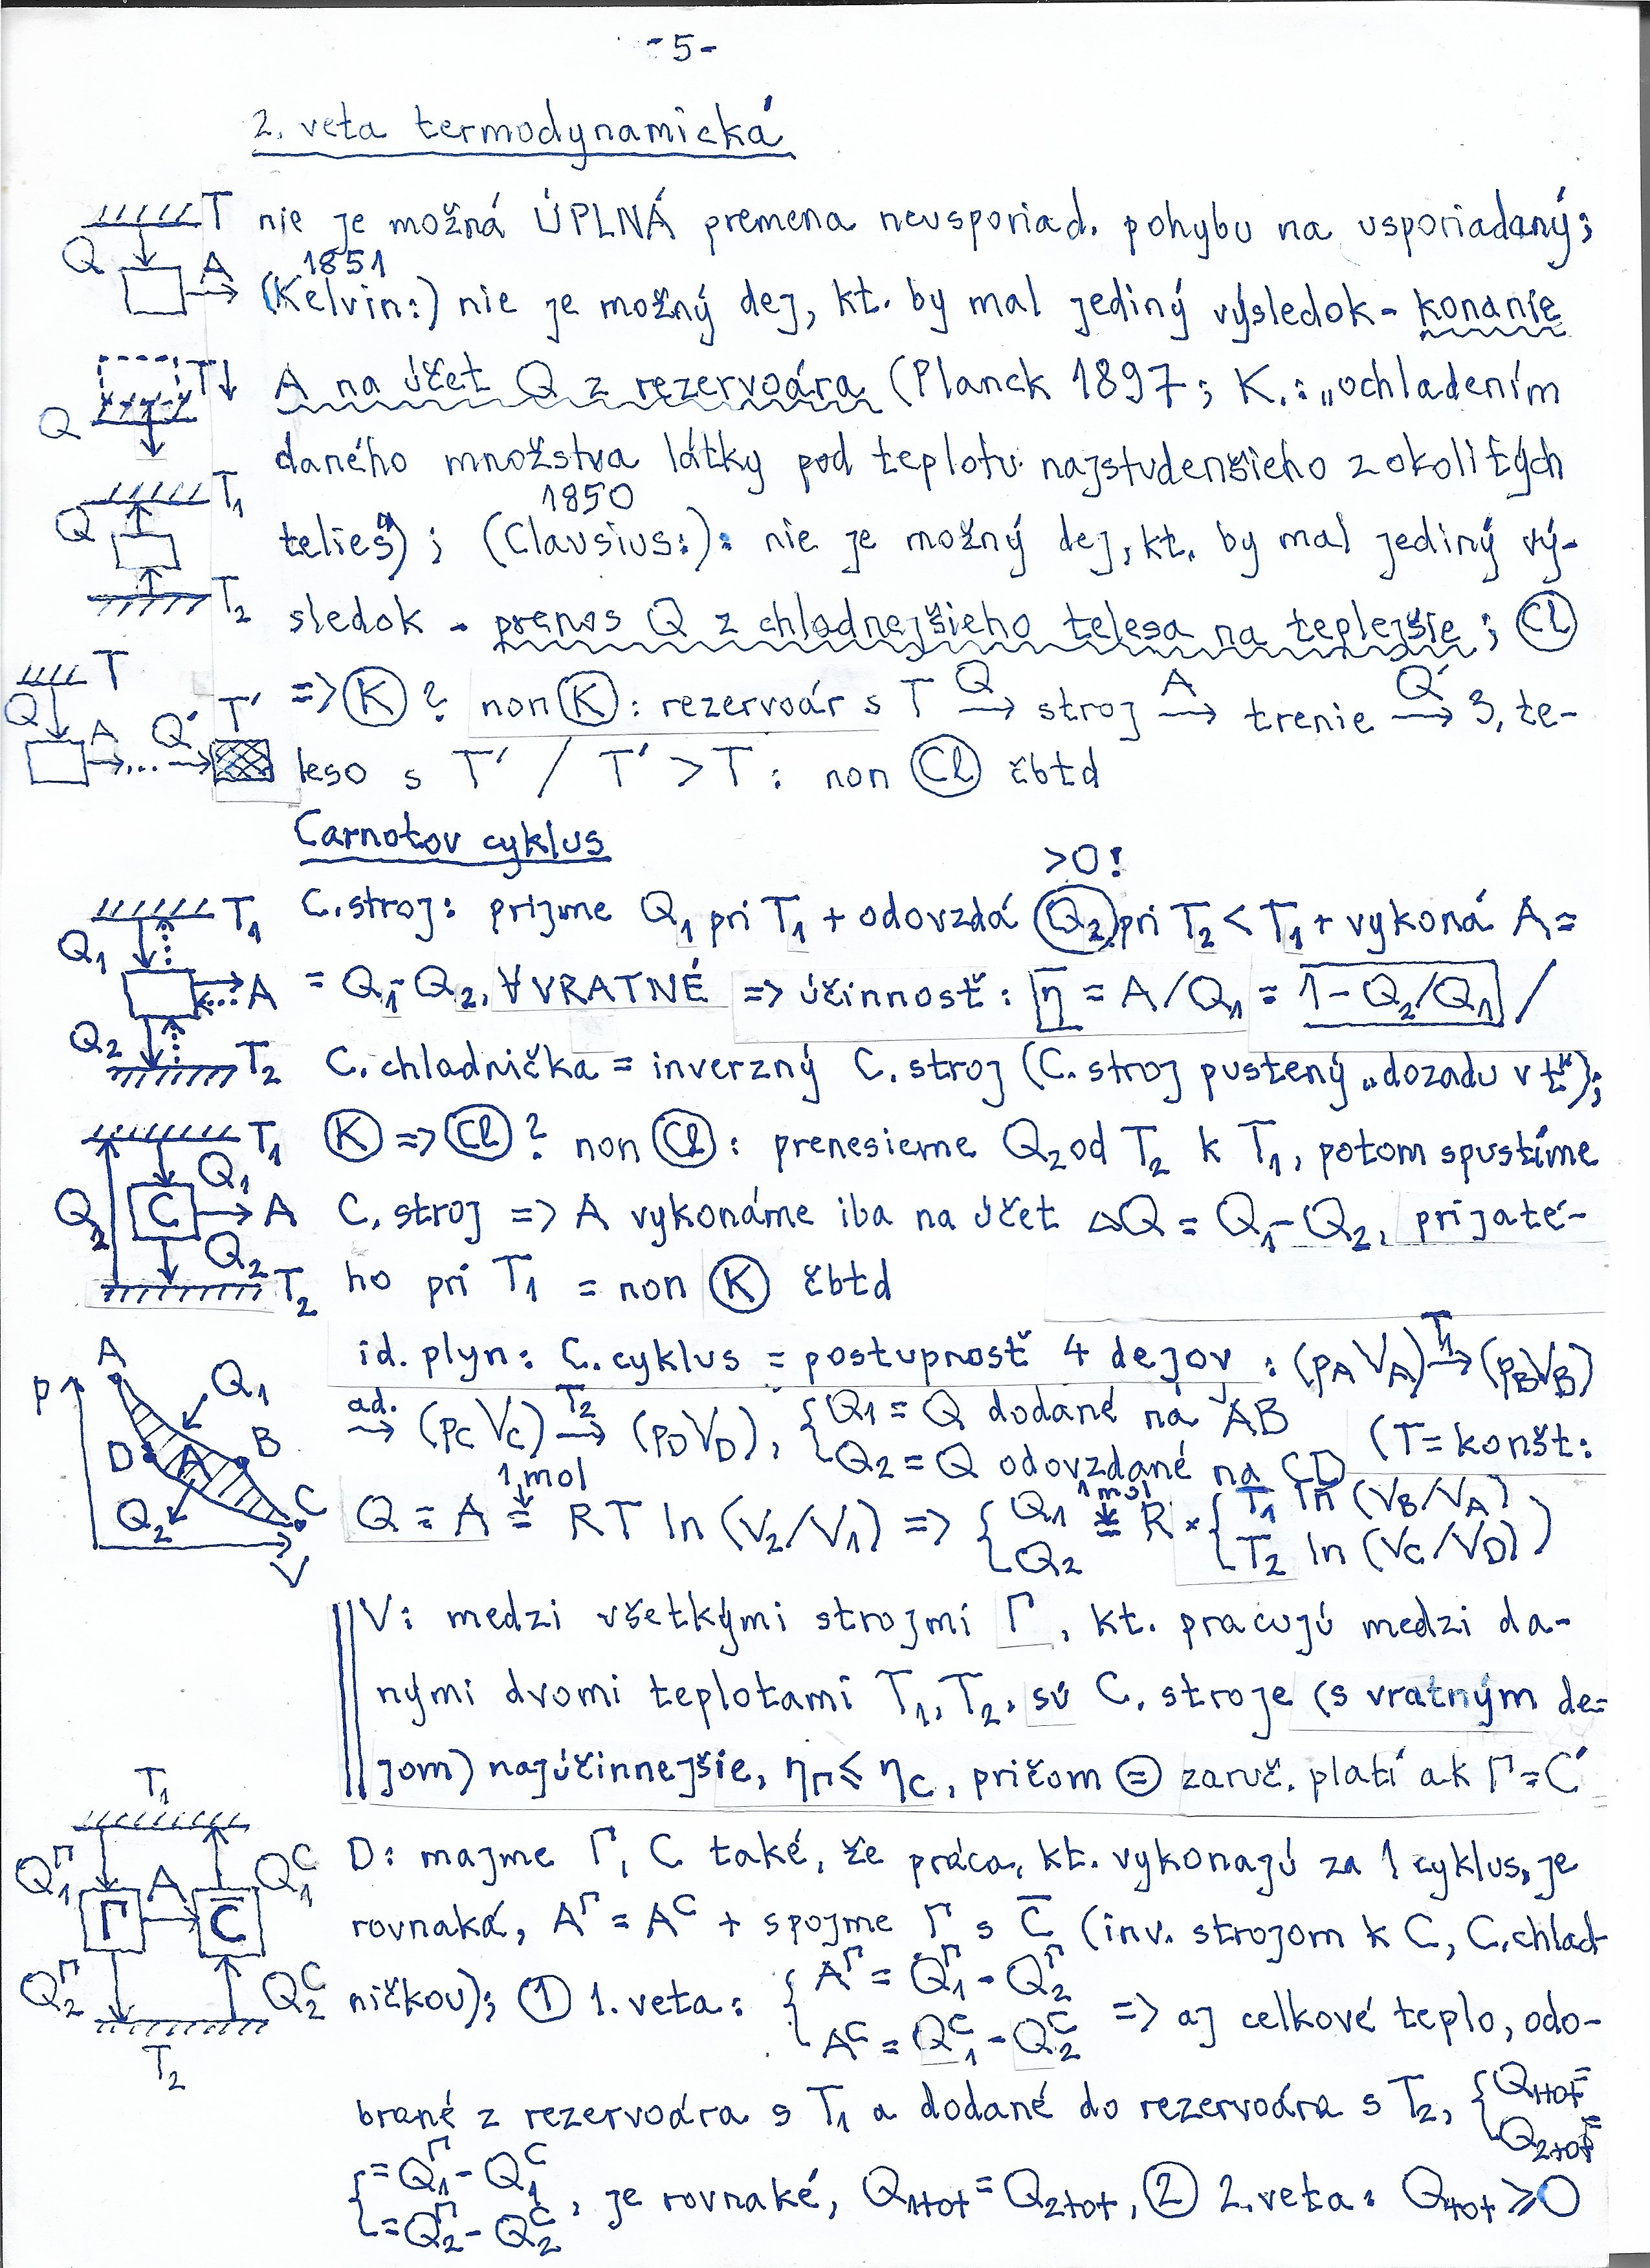 -5-
2. veta termodynamická
nie je možná ÚPLNÁ premena neusporiad. pohybu na usporiadaný;
1851
(Kelvin:) nie je možný dej, kt. by mal jediný výsledok - konanie
A na účet Q z rezervoára (Planck 1897; K.: „ochladením
daného množstva látky pod teplotu najstudenšieho z okolitých
1850
telies“); (Clausius:): nie je možný dej, kt. by mal jediný vý-
sledok - prenos Q z chladnejšieho telesa na teplejšie; Cl
=> K? non K: rezervoár s T Q→ stroj A→ trenie Q'→ 3. te-
leso s T' / T' > T: non Cl čbtd
T Q A
T↓ Q
T1 Q T2
T Q A ... Q' T'
Carnotov cyklus
>0!
C. stroj: prijme Q1 pri T1 + odovzdá Q2 pri T2 < T1 + vykoná A =
= Q1 - Q2, ∀ VRATNÉ => účinnosť: η = A/Q1 = 1 - Q2/Q1 /
C. chladnička = inverzný C. stroj (C. stroj pustený „dozadu v t“);
K => Cl? non Cl: prenesieme Q2 od T2 k T1, potom spustíme
C. stroj => A vykonáme iba na účet ΔQ = Q1 - Q2, prijaté-
ho pri T1 = non K čbtd
T1 Q1 A Q2 T2
T1 Q1 Q2 C A Q2 T2
id. plyn: C. cyklus = postupnosť 4 dejov: (pA VA) T1→ (pB VB)
ad.→ (pC VC) T2→ (pD VD), { Q1 = Q dodané na AB
Q2 = Q odovzdané na CD (T = konšt:
1 mol
Q = A = RT ln (V2/V1) => { Q1 Q2 1 mol = R × { T1 ln (VB/VA)
T2 ln (VC/VD) )
p A Q1 B D A Q2 C V
V: medzi všetkými strojmi Γ, kt. pracujú medzi da-
nými dvomi teplotami T1, T2, sú C. stroje (s vratným de-
jom) najúčinnejšie, ηΓ ≤ ηC, pričom = zaruč. platí ak Γ = C'
D: majme Γ, C také, že práca, kt. vykonajú za 1 cyklus, je
rovnaká, A^Γ = A^C + spojme Γ s C̄ (inv. strojom k C, C. chlad-
ničkou); ① 1. veta: { A^Γ = Q1^Γ - Q2^Γ
A^C = Q1^C - Q2^C => aj celkové teplo, odo-
brané z rezervoára s T1 a dodané do rezervoára s T2, { Q1tot =
Q2tot =
{ = Q1^Γ - Q1^C
= Q2^Γ - Q2^C, je rovnaké, Q1tot = Q2tot, ② 2. veta: Qtot ≥ 0
T1 Q1^Γ A Q1^C Γ C̄ Q2^Γ Q2^C T2